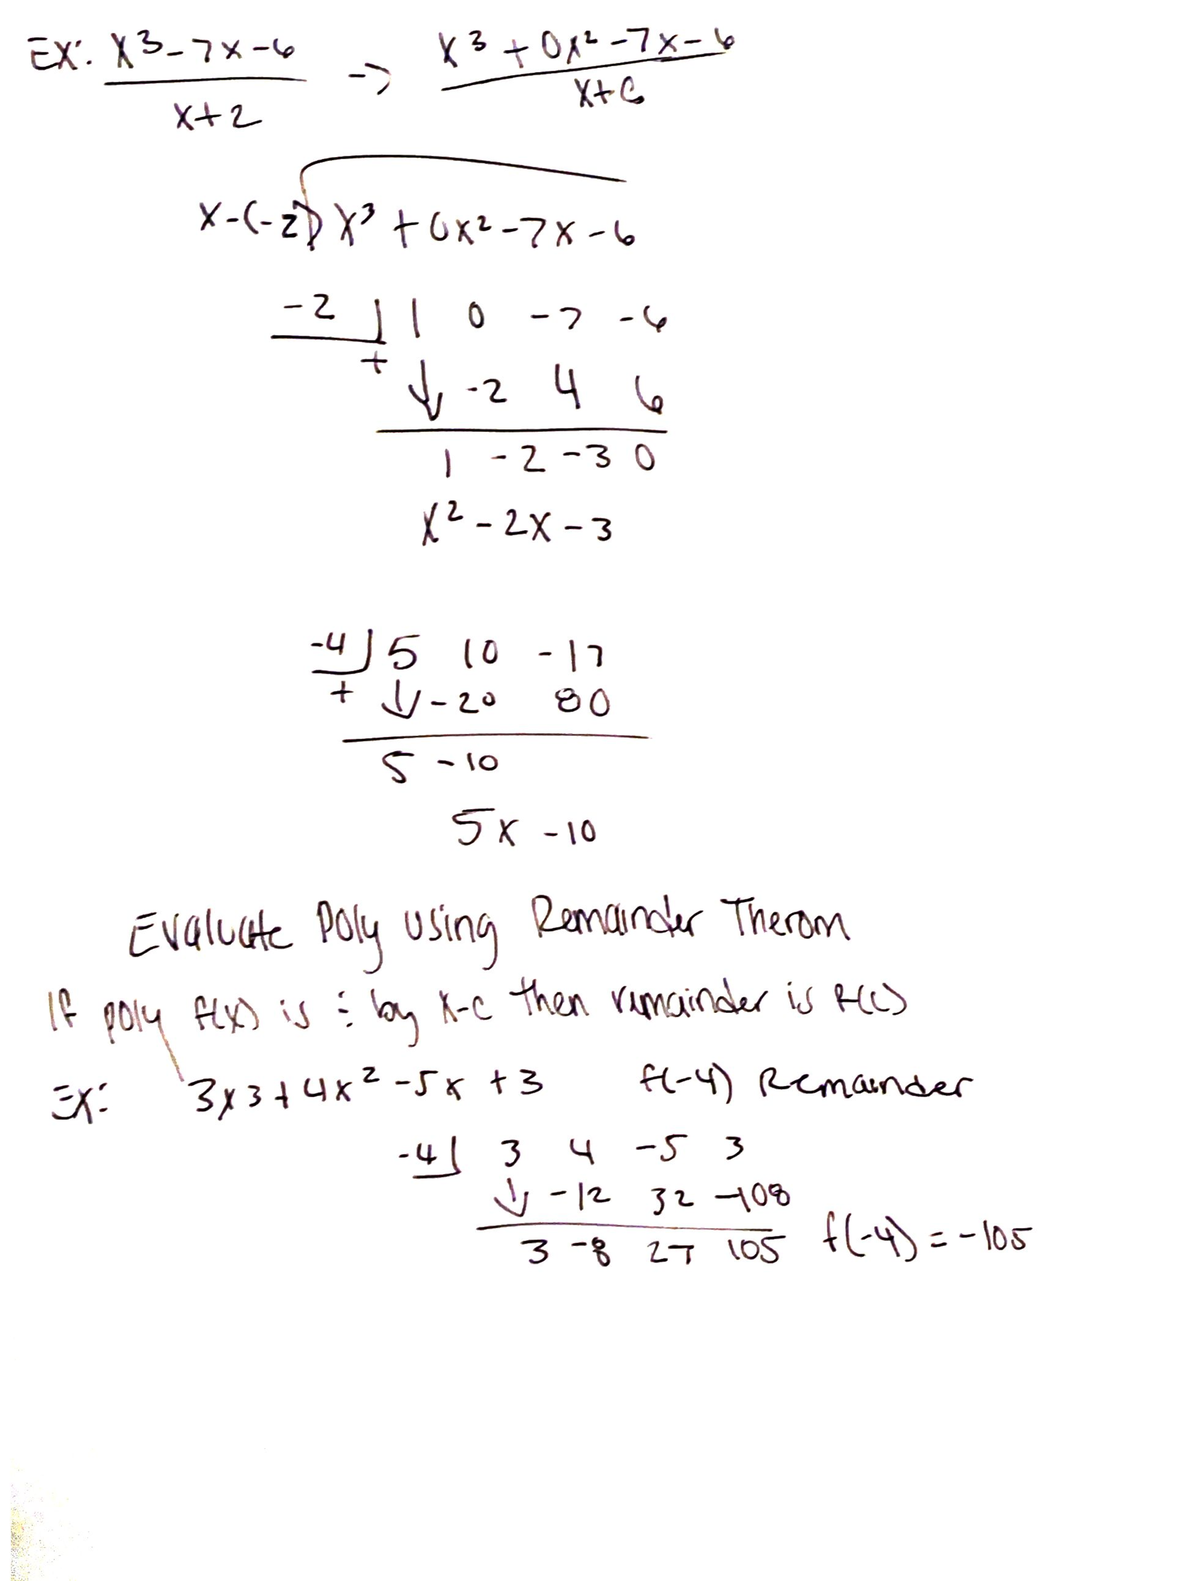 EX: x3-7x-6 -> x3 + 0x2 -7x-6
x+2 x+6
x-(-2) x3 + 0x2 -7x -6
-2 | 1 0 -7 -6
+ ↓ -2 4 6
1 -2 -3 0
x2 - 2x - 3
-4 | 5 10 -17
+ ↓ -20 80
5 -10
5x -10
Evaluate Poly using Remainder Therom
If poly f(x) is ÷ by x-c then remainder is f(c)
Ex: 3x3+4x2-5x+3 f(-4) Remainder
-4 | 3 4 -5 3
↓ -12 32 -108
3 -8 27 105 f(-4) = -105